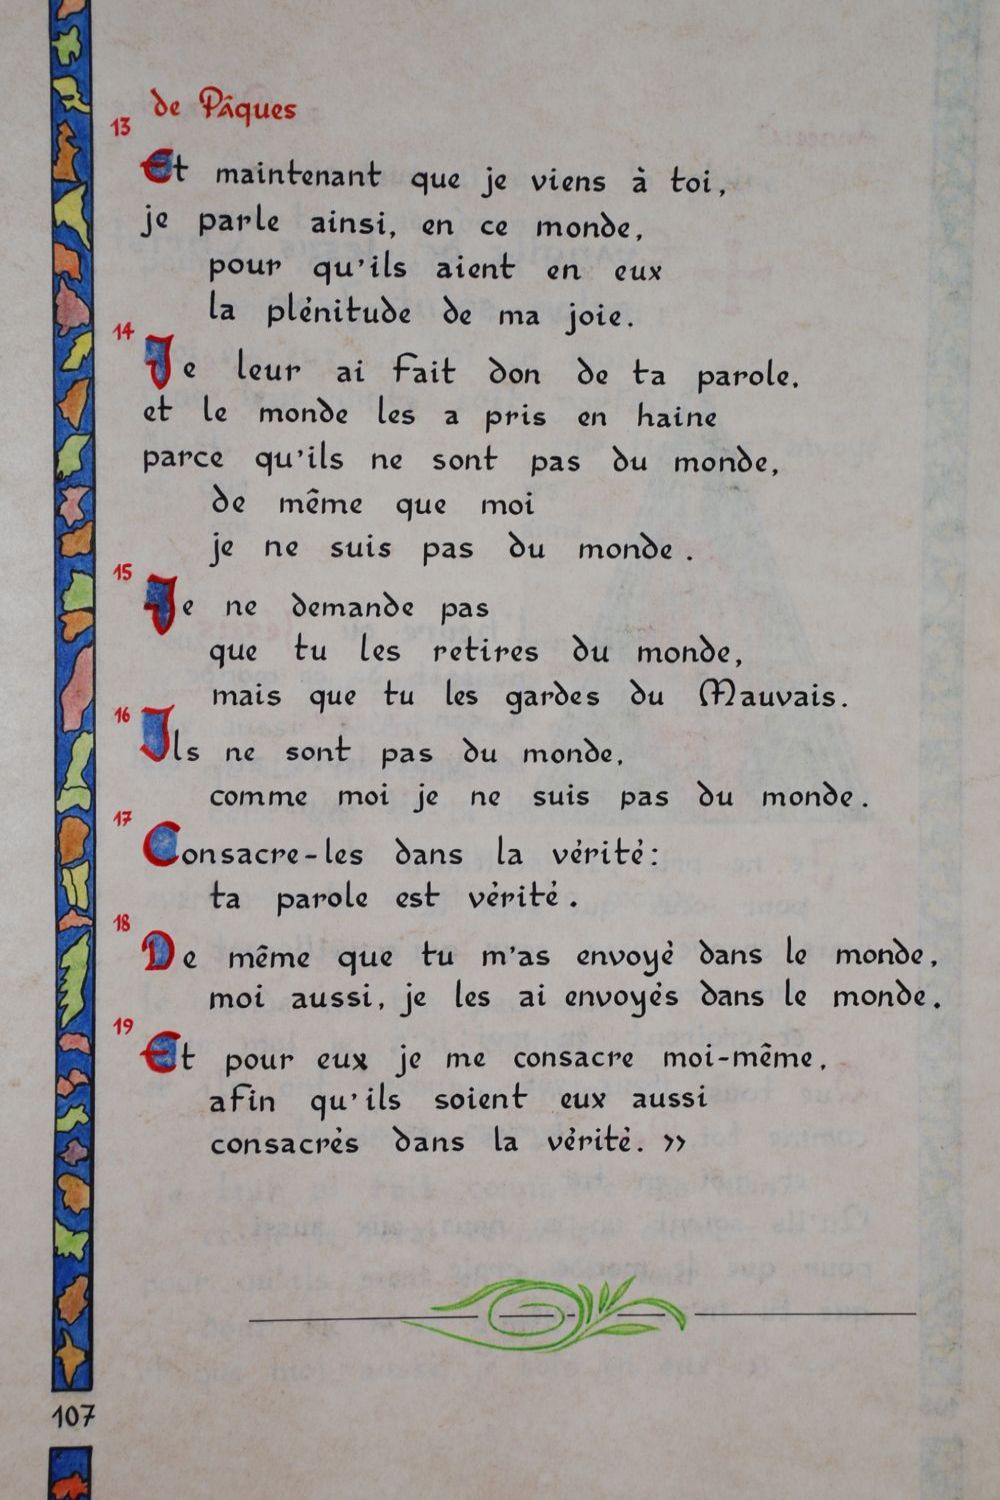 de Pâques
13
Et maintenant que je viens à toi,
je parle ainsi, en ce monde,
pour qu'ils aient en eux
la plénitude de ma joie.
14
Je leur ai fait don de ta parole.
et le monde les a pris en haine
parce qu'ils ne sont pas du monde,
de même que moi
je ne suis pas du monde.
15
Je ne demande pas
que tu les retires du monde,
mais que tu les gardes du Mauvais.
16
Ils ne sont pas du monde,
comme moi je ne suis pas du monde.
17
Consacre-les dans la vérité:
ta parole est vérité.
18
De même que tu m'as envoyé dans le monde,
moi aussi, je les ai envoyés dans le monde.
19
Et pour eux je me consacre moi-même,
afin qu'ils soient eux aussi
consacrés dans la vérité. »
107